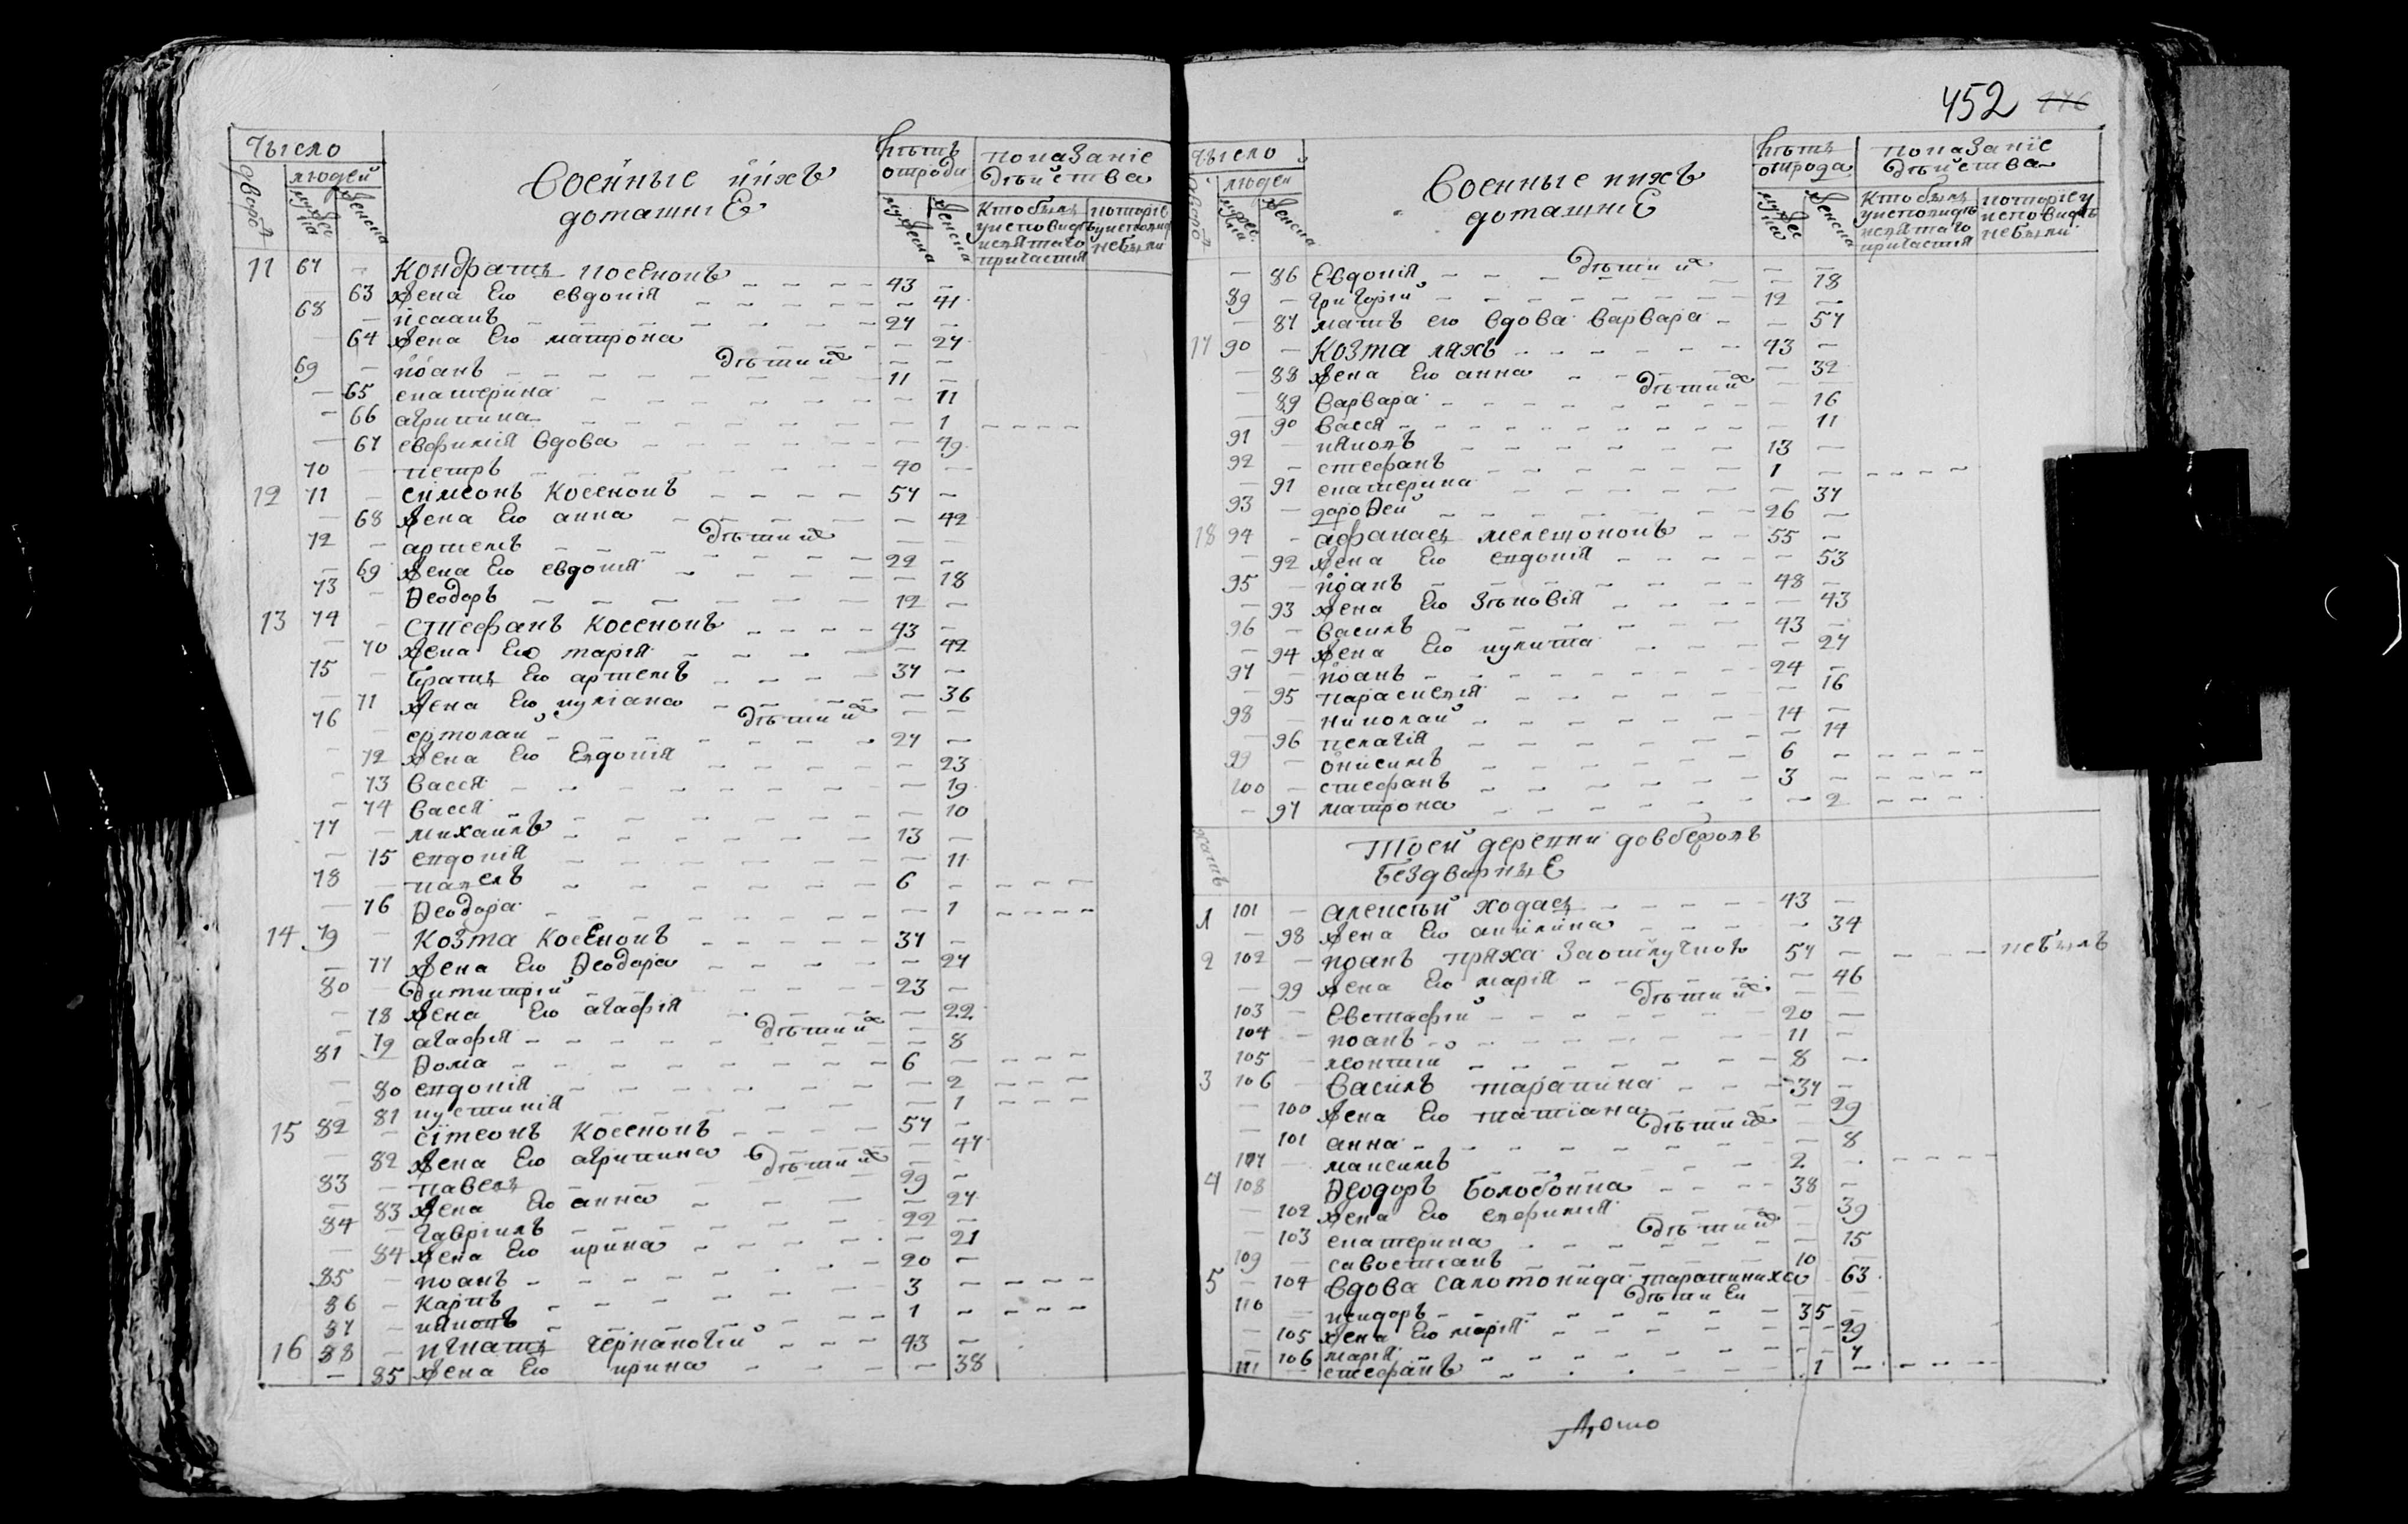 452 446
Число
дворовъ
людей
мужеска
женска
Военные й ихъ
домашнıе
Лѣтъ
отроду
мужеска
женска
показаніе
дѣйства
Кто былъ
у исповѣди
и святаго
причастия
которіе
у исповѣди
не были
11 67 - Кондратъ косенокъ - - - - 43 -
- 63 жена его евдокія - - - - - 41
68 - ісаакъ - - - - - 27 -
- 64 жена его матрона - - - 27
дѣти ихъ - -
69 - іоанъ - - - - - 11 -
- 65 екатерина - - - - - 11
- 66 агрипина - - - - - 1 - - - -
- 67 евфимія вдова - - - - - 49
70 - петръ - - - - - 40 -
12 71 - симеонъ Косенокъ - - - - 57 -
- 68 жена его анна - - - - 42
дѣти ихъ - -
72 - артемъ - - - - - 22 -
- 69 жена его евдокия - - - - 18
73 - Ѳеодоръ - - - - - 12 -
13 74 - стефанъ Косенокъ - - - - 43 -
- 70 жена его марія - - - - 42
75 - братъ его артемъ - - - - 37 -
- 71 жена его иуліана - - - - 36
дѣти ихъ - -
76 - ермолай - - - - - 27 -
- 72 жена его Евдокія - - - - 23
- 73 васся - - - - - 19
- 74 васся - - - - - 10
77 - михаилъ - - - - - 13 -
- 75 евдокія - - - - - 11
78 - павелъ - - - - - 6 - - - -
- 76 Ѳеодора - - - - - 1 - - - -
14 79 - Козма Косенокъ - - - - 37 -
- 77 жена его Ѳеодора - - - - 27
80 - Димитрій - - - - - 23 -
- 78 жена его агафія - - - - 22
дѣти ихъ -
- 79 агафія - - - - - 8
81 - Ѳома - - - - - 6 - - - -
- 80 евдокія - - - - - 2 - - -
- 81 иустинія - - - - - 1 - - -
15 82 - сімеонъ Косенокъ - - - - 57 -
- 82 жена его агрипина - 47
дѣти ихъ
83 - павелъ - - - - 29 -
- 83 жена его анна - - - - 27
84 - гавріилъ - - - - - 22 -
- 84 жена его ирина - - - - 21
85 - іоанъ - - - - - 20 -
86 - Карпъ - - - - - 3 - - - -
87 - никонъ - - - - - 1 - - - -
16 88 - игнатъ - - - 43 -
- 85 жена его ирина - - - - 38
Число
дворовъ
людей
мужес.
женска
Военные и ихъ
домашнıе
Лѣтъ
отрода
мужес
женска
показаніе
дѣйства
Кто былъ
у исповѣди
и святаго
причастія
которіе у
исповѣди
не были
дѣти ихъ - -
- 86 Евдокія - - - - - 18
89 - григорій - - - - - 12 -
- 87 мать его вдова варвара - - 57
17 90 - Козма ляхъ - - - - - 43 -
- 88 жена его анна - - - 32
дѣти ихъ
- 89 варвара - - - - - 16
- 90 васся - - - - - 11
91 - - - - - - 13 -
92 - стефанъ - - - - - 1 - - - - -
- 91 екатерина - - - - - 37
93 - дороѲей - - - - - 26 -
18 94 - афанасъ - - 55 -
- 92 жена его евдокія - - - - 53
95 - іоанъ - - - - - 48 -
- 93 жена его Зѣновія - - - - 43
96 - василь - - - - - 43 -
- 94 жена его иулита - - - - 27
97 - іоанъ - - - - - 24 -
- 95 параскевія - - - - - 16
98 - николай - - - - - 14 -
- 96 пелагія - - - - - 14
99 - онисимъ - - - - - 6 - - - - -
100 - стефанъ - - - - - 3 - - - - -
- 97 матрона - - - - - 2 - - - -
Тоей деревни довберолъ
Бездворныıе
1 101 - алексѣй ходасъ - - - - - 43 -
- 98 жена его акилина - - - - 34
2 102 - іоанъ пряха За отлучкою 57 - - - - не былъ
- 99 жена его марія - - - - 46
дѣти ихъ - -
103 - Евстафій - - - - - 20 -
104 - іоанъ - - - - - 11 -
105 - леонтій - - - - - 8 -
3 106 - василъ тарапина - - - 37 -
- 100 жена его татіана - - - 29
дѣти ихъ
- 101 анна - - - - - 8
107 - максимъ - - - - - 2 - - - - -
4 108 Ѳеодоръ болобонка - - - - 38 -
- 102 жена его евфимія - - - 39
дѣти ихъ -
- 103 екатерина - - - - 15
109 - савостіанъ - - - - 10 -
5 - 104 вдова саломонида тарапиниха 63
дѣти Ей
110 - исидоръ - - - - - 35 -
- 105 жена его марія - - - - 29
- 106 марія - - - - - 7
111 - стефанъ - - - - - 1 - - - - -